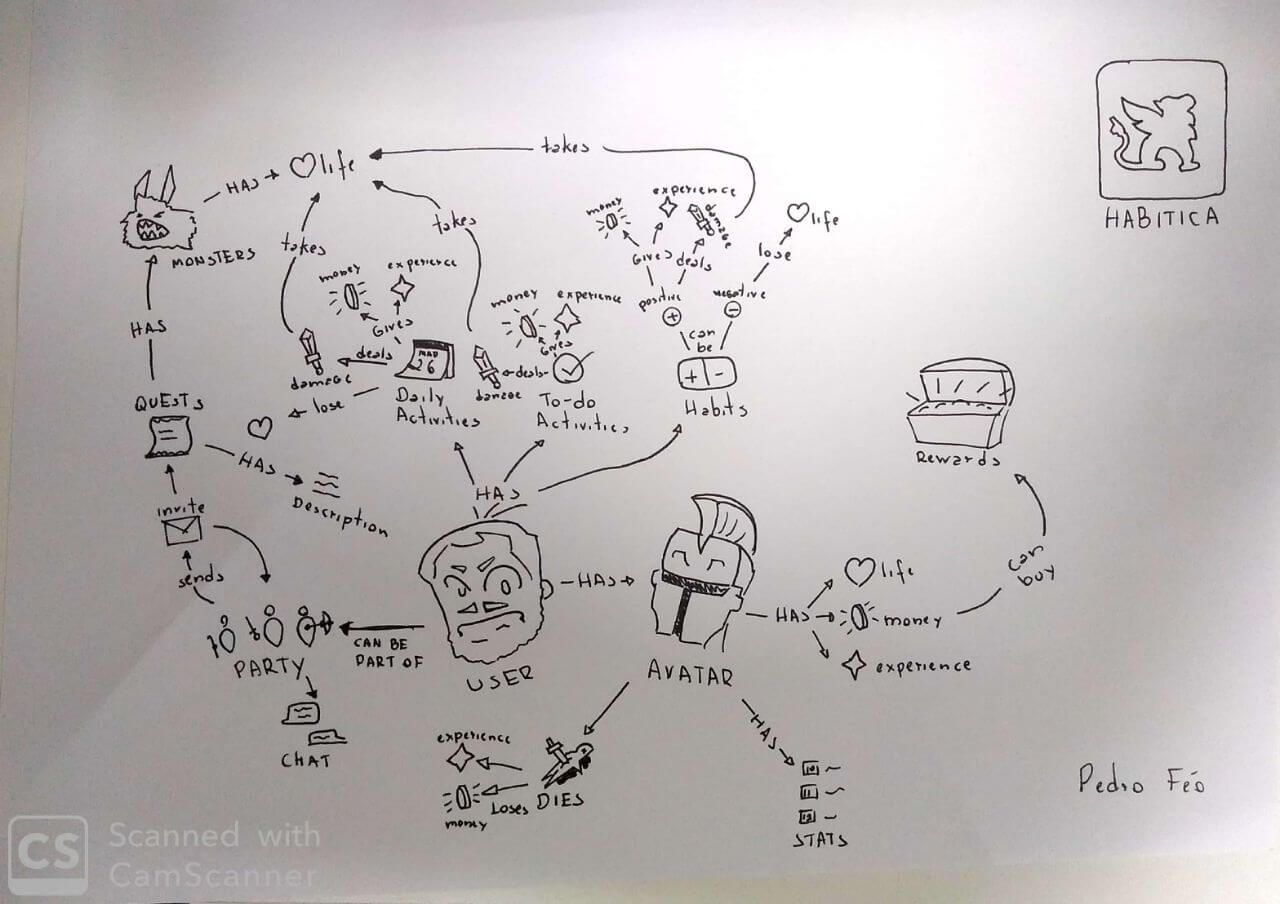 HABITICA
takes
life
HAS
MONSTERS
takes
takes
money
experience
Gives
deals
damage
lose
MAD
26
Daily
Activities
money
experience
Gives
deals
damage
To-do
Activities
money
experience
damage
Gives
deals
positive
+
negative
-
life
lose
can
be
+ -
Habits
HAS
QUESTS
HAS
Description
invite
sends
PARTY
CHAT
CAN BE
PART OF
HAS
USER
HAS
AVATAR
HAS
life
money
experience
can
buy
Rewards
DIES
Loses
experience
money
HAS
10
11
STATS
Pedro Féo
CS
Scanned with
CamScanner